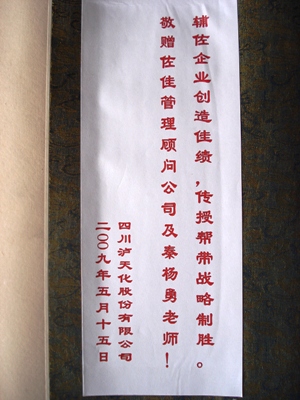 辅佐企业创造佳绩，传授帮带战略制胜。
敬赠佐佳管理顾问公司及秦杨勇老师！
四川泸天化股份有限公司
二00九年五月十五日